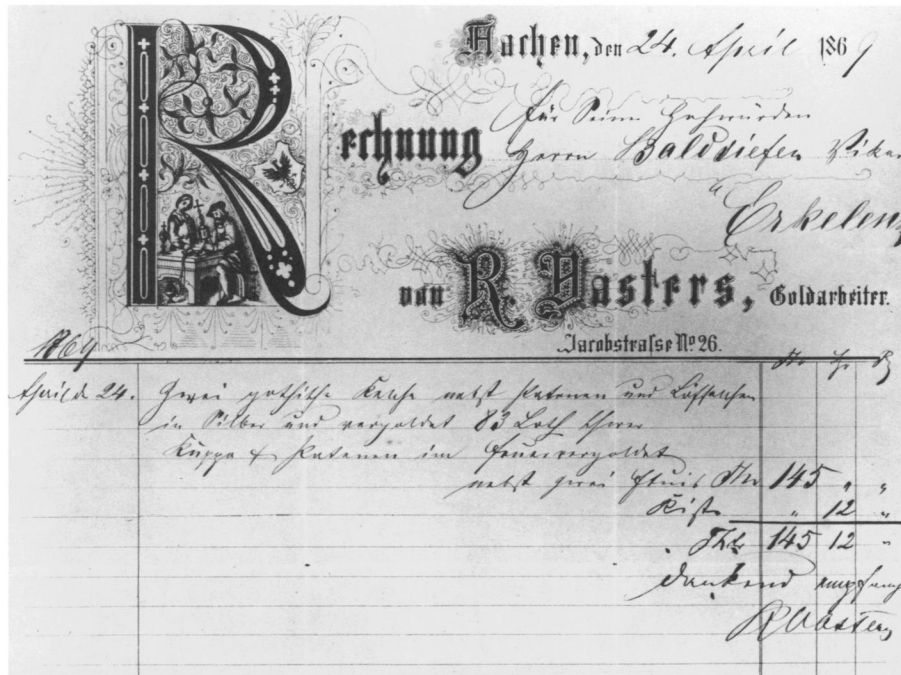 Aachen, den 24. April 1869
Für Seine Hochwürden
Rechnung Herrn Balddiefen Vikar
Erkelenz
von R. Vasters, Goldarbeiter.
Jacobstrafse No 26.
1869
April d. 24. Zwei gothische Kelche nebst Patenen und Löffelchen
in Silber und vergoldet 83 Loth schwer
Kuppa & Patenen im Feuer vergoldet
nebst zwei Etuis Thr 145 " "
Kiste " 12 "
Thlr 145 12 "
dankend empfangen
R Vasters